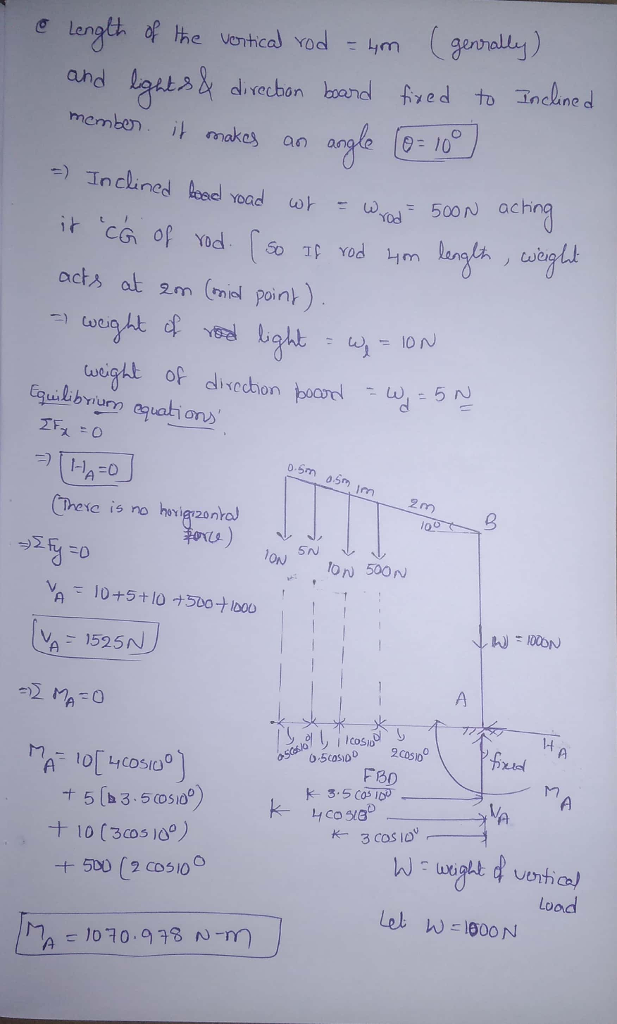 Length of the vertical rod = 4m (genrally)
and lights & direction board fixed to Inclined
member. it makes an angle θ = 10°
=) Inclined road wt = W_rod = 500N acting
it 'CG of rod. [so If rod 4m length, weight
acts at 2m (mid point).
=) weight of light = W_l = 10N
weight of direction board = W_d = 5N
Equilibrium equations'.
ΣFx = 0
=) HA = 0
(There is no horigizontal
force)
=) ΣFy = 0
VA = 10+5+10+500+1000
VA = 1525N
=) Σ MA = 0
MA = 10[4cos10°]
+ 5(3.5cos10°)
+ 10(3cos10°)
+ 500(2cos10°
MA = 1070.978 N-m
0.5m 0.5m 1m 2m
10° B
10N 5N 10N 500N
W = 1000N
A
HA
0.5cos10° 0.5cos10° 1cos10° 2cos10°
fixed
FBD
MA
3.5cos10°
VA
4cos10°
3cos10°
W = weight of vertical
load
Let W = 1000N